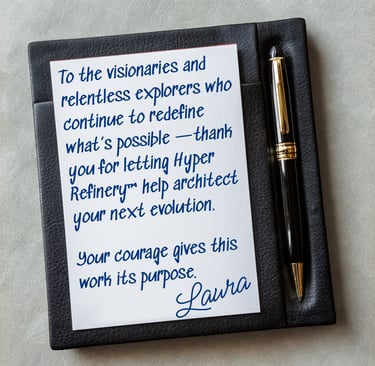 To the visionaries and
relentless explorers who
continue to redefine
what's possible —thank
you for letting Hyper
Refinery™ help architect
your next evolution.
Your courage gives this
work its purpose.
Laura